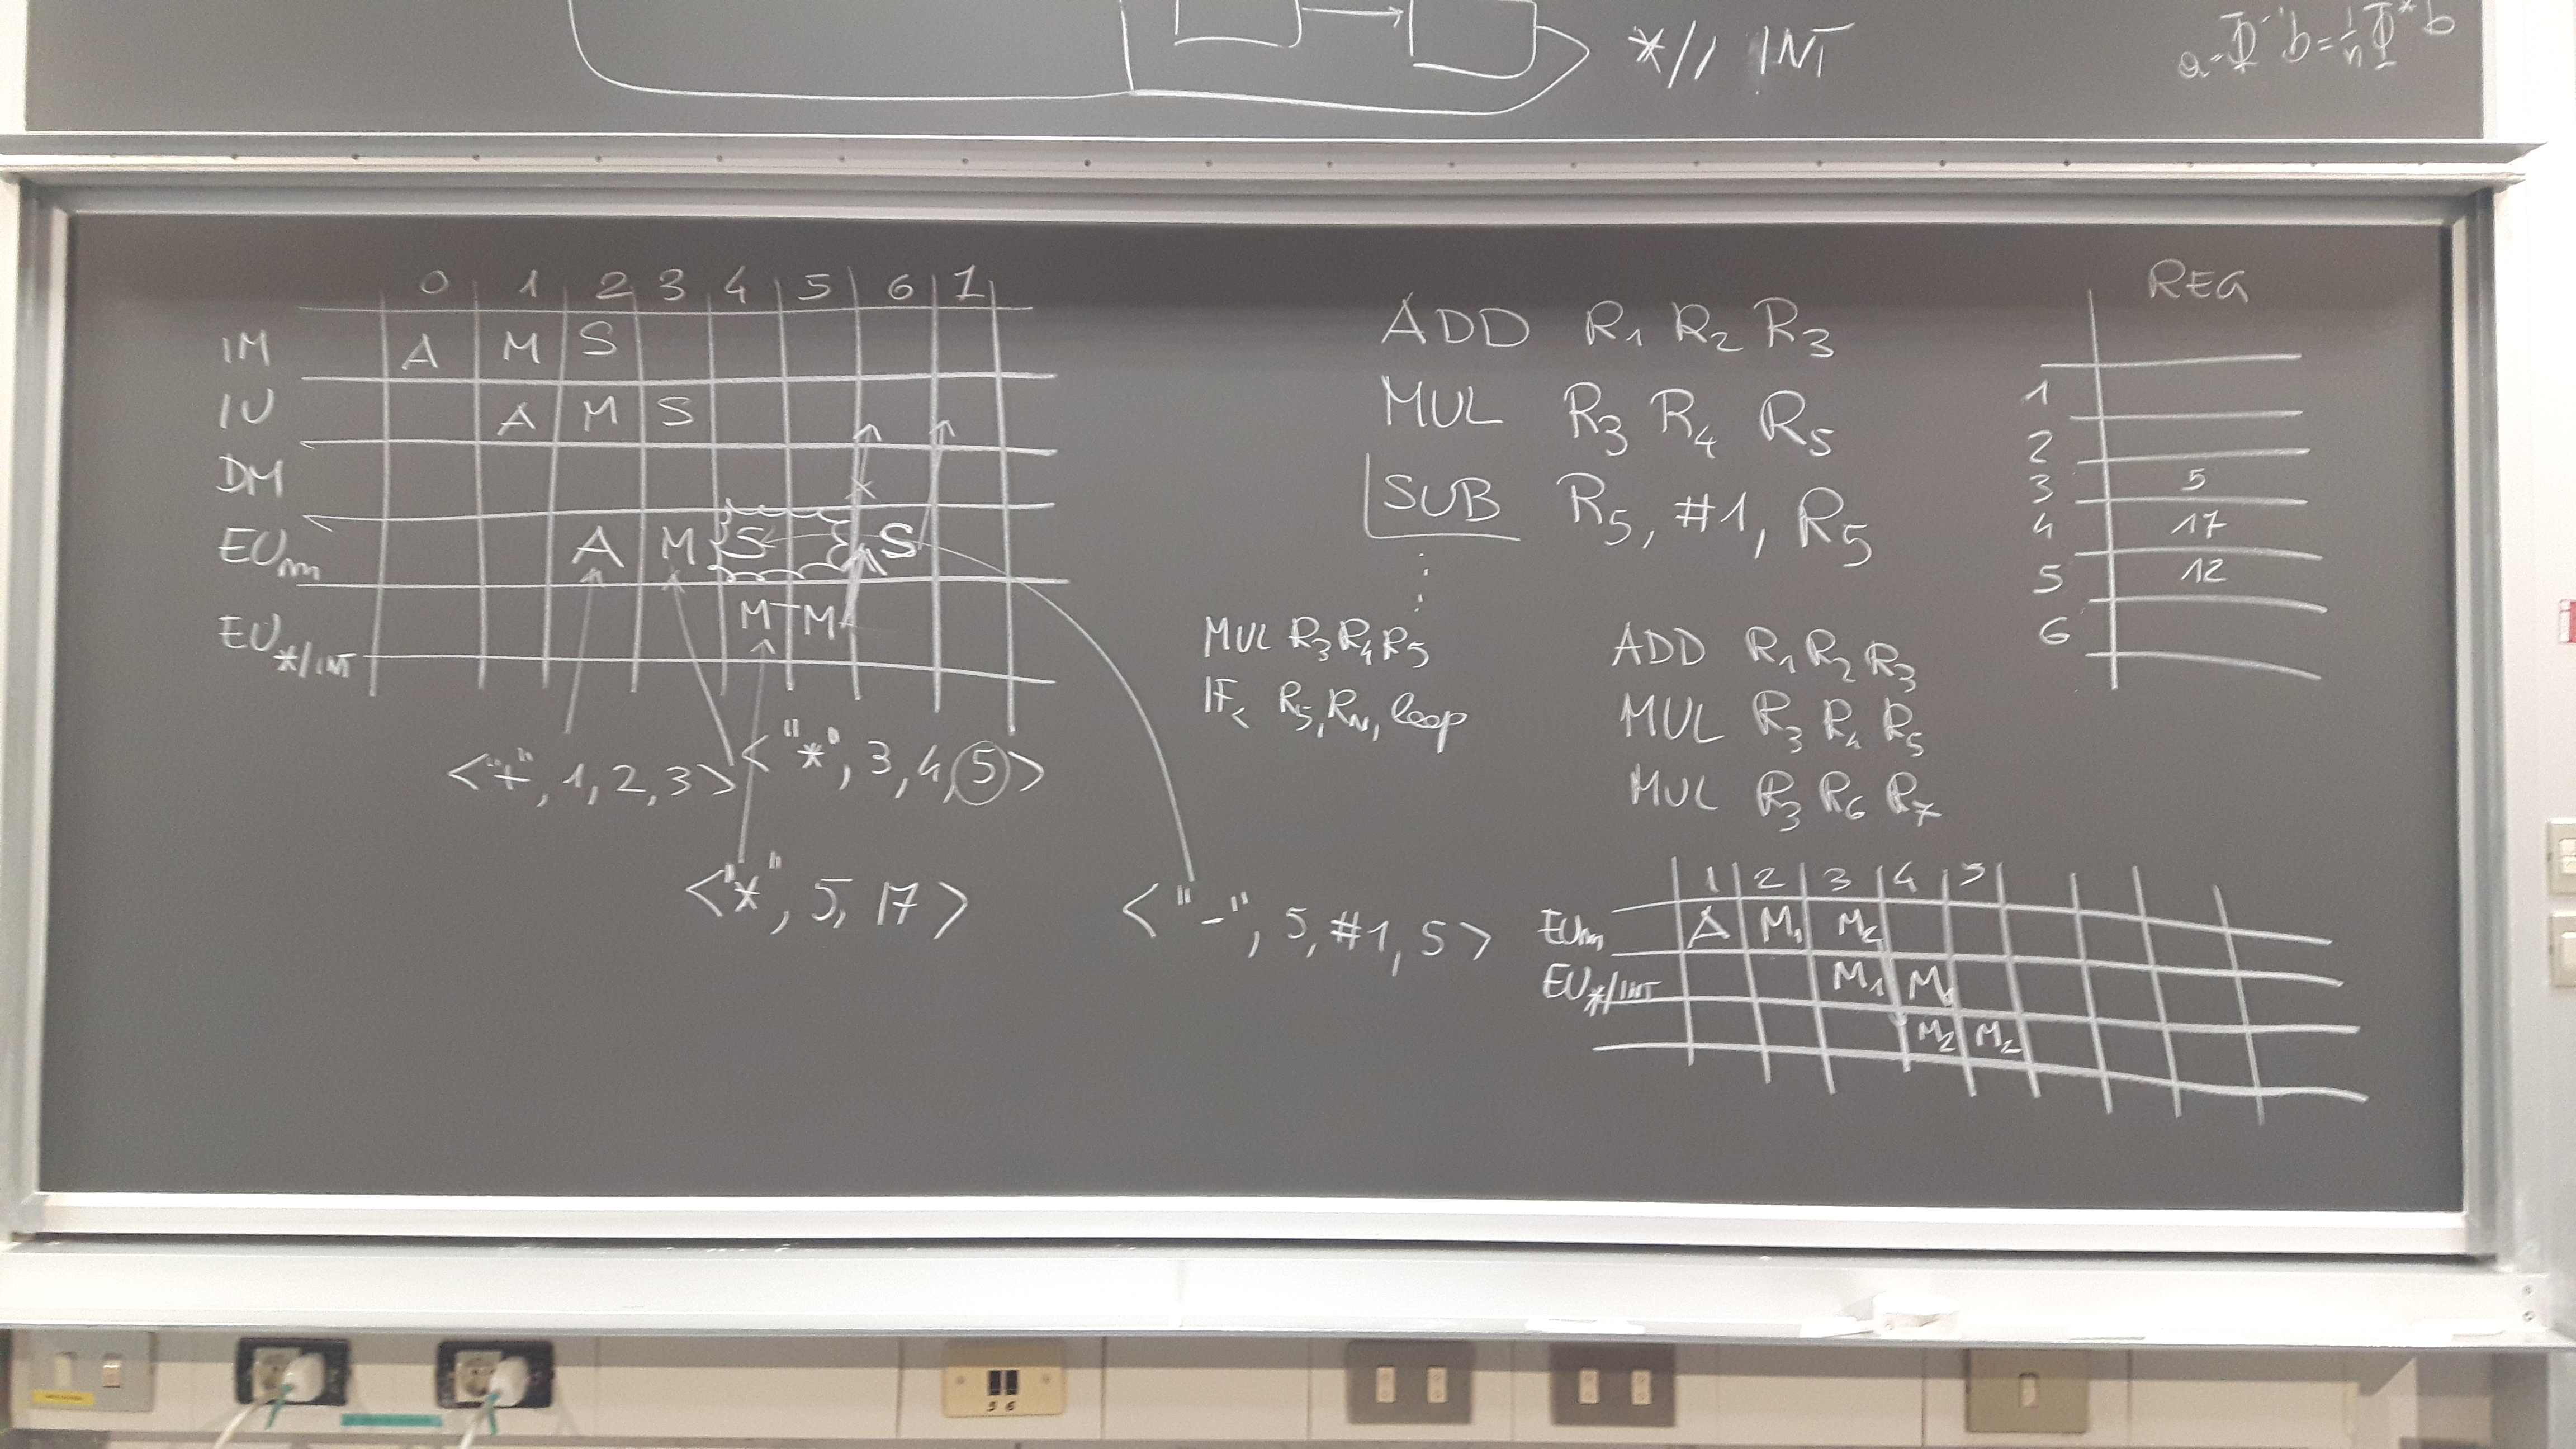 *// INT
a = Φ⁻¹ b = 1/n Φ* b
0 1 2 3 4 5 6 7
IM A M S
IU A M S
DM
EUm A M S S
EU*/INT M M
<"+", 1, 2, 3>
<"*", 3, 4, 5>
<"*", 5, 17>
<"-", 5, #1, 5>
ADD R1 R2 R3
MUL R3 R4 R5
SUB R5, #1, R5
MUL R3 R4 R5
IF< R5, RN, loop
ADD R1 R2 R3
MUL R3 R4 R5
MUL R3 R6 R7
REG
1
2
3 5
4 17
5 12
6
1 2 3 4 5
EUm A M1 M2
EU*/INT M1 M1
M2 M2
5 6